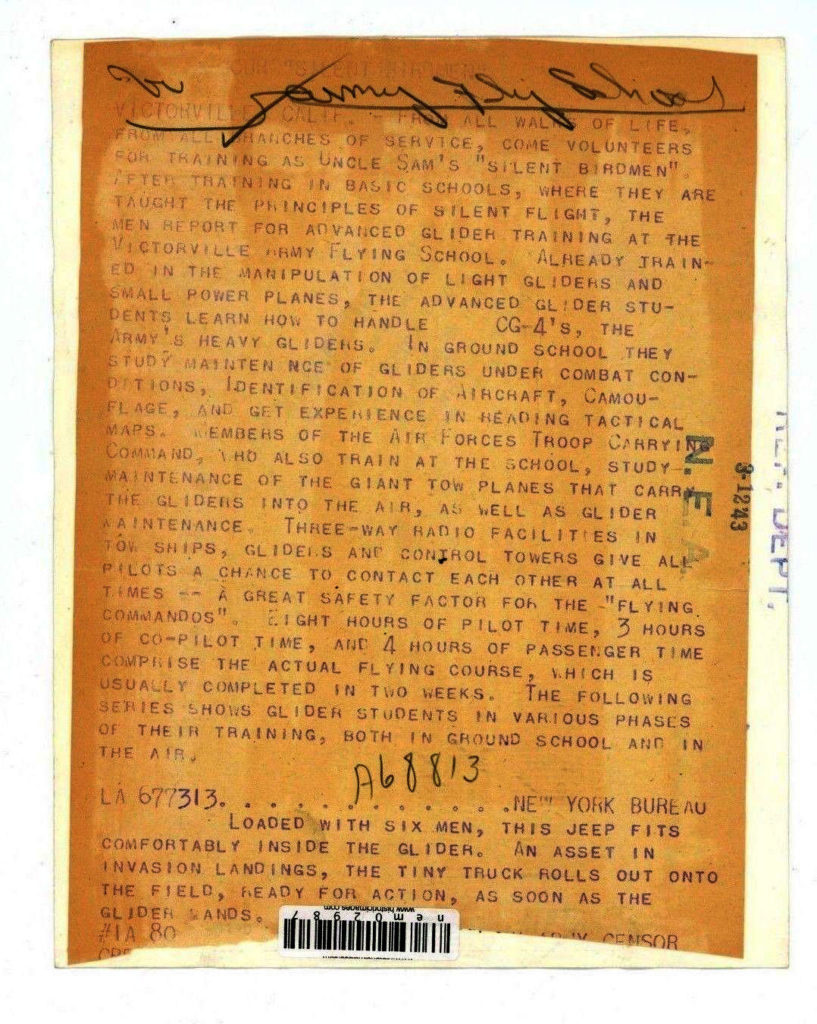 Army Fly School
VICTORVILLE, CALIF. - FROM ALL WALKS OF LIFE,
FROM ALL BRANCHES OF SERVICE, COME VOLUNTEERS
FOR TRAINING AS UNCLE SAM'S "SILENT BIRDMEN".
AFTER TRAINING IN BASIC SCHOOLS, WHERE THEY ARE
TAUGHT THE PRINCIPLES OF SILENT FLIGHT, THE
MEN REPORT FOR ADVANCED GLIDER TRAINING AT THE
VICTORVILLE ARMY FLYING SCHOOL. ALREADY TRAIN-
ED IN THE MANIPULATION OF LIGHT GLIDERS AND
SMALL POWER PLANES, THE ADVANCED GLIDER STU-
DENTS LEARN HOW TO HANDLE CG-4'S, THE
ARMY'S HEAVY GLIDERS. IN GROUND SCHOOL THEY
STUDY MAINTEN NCE OF GLIDERS UNDER COMBAT CON-
DITIONS, IDENTIFICATION OF AIRCRAFT, CAMOU-
FLAGE, AND GET EXPERIENCE IN READING TACTICAL
MAPS. MEMBERS OF THE AIR FORCES TROOP CARRYING
COMMAND, WHO ALSO TRAIN AT THE SCHOOL, STUDY
MAINTENANCE OF THE GIANT TOW PLANES THAT CARRY
THE GLIDERS INTO THE AIR, AS WELL AS GLIDER
MAINTENANCE. THREE-WAY RADIO FACILITIES IN
TOW SHIPS, GLIDERS AND CONTROL TOWERS GIVE ALL
PILOTS A CHANCE TO CONTACT EACH OTHER AT ALL
TIMES -- A GREAT SAFETY FACTOR FOR THE "FLYING
COMMANDOS". EIGHT HOURS OF PILOT TIME, 3 HOURS
OF CO-PILOT TIME, AND 4 HOURS OF PASSENGER TIME
COMPRISE THE ACTUAL FLYING COURSE, WHICH IS
USUALLY COMPLETED IN TWO WEEKS. THE FOLLOWING
SERIES SHOWS GLIDER STUDENTS IN VARIOUS PHASES
OF THEIR TRAINING, BOTH IN GROUND SCHOOL AND IN
THE AIR.
A68813
LA 677313. . . . . . . . . . . . .NEW YORK BUREAU
LOADED WITH SIX MEN, THIS JEEP FITS
COMFORTABLY INSIDE THE GLIDER. AN ASSET IN
INVASION LANDINGS, THE TINY TRUCK ROLLS OUT ONTO
THE FIELD, READY FOR ACTION, AS SOON AS THE
GLIDER LANDS.
#1A 80
CENSOR
nem02987
www.historicimages.com
N.E.A.
3-1243
DEPT.